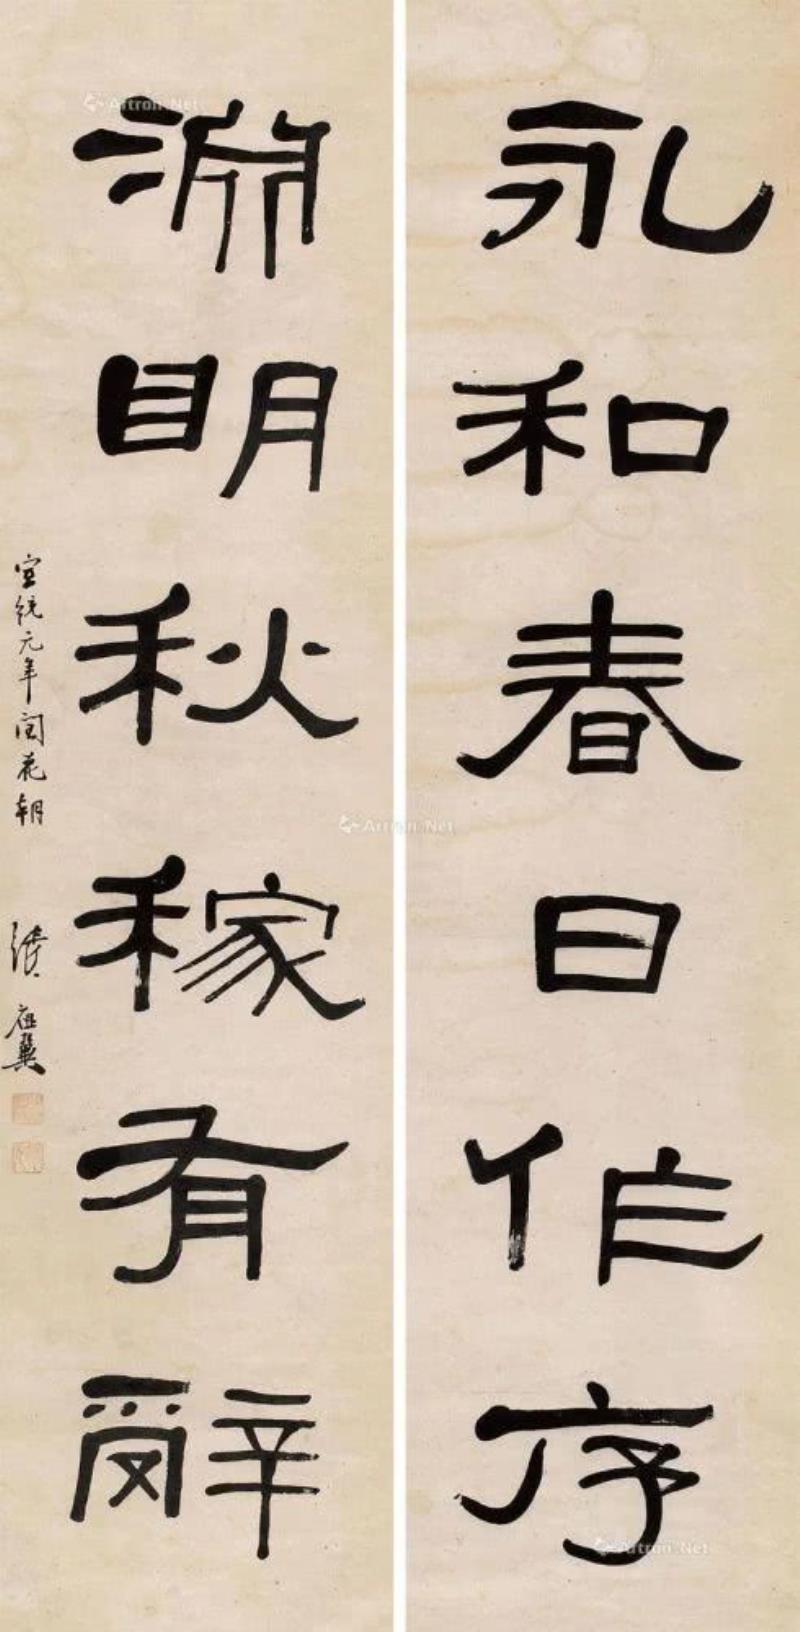 永和春日作序
淵眀秋稼有辭
宣統元年閏花朝
Artron.Net
Artron.Net
Artron.Net